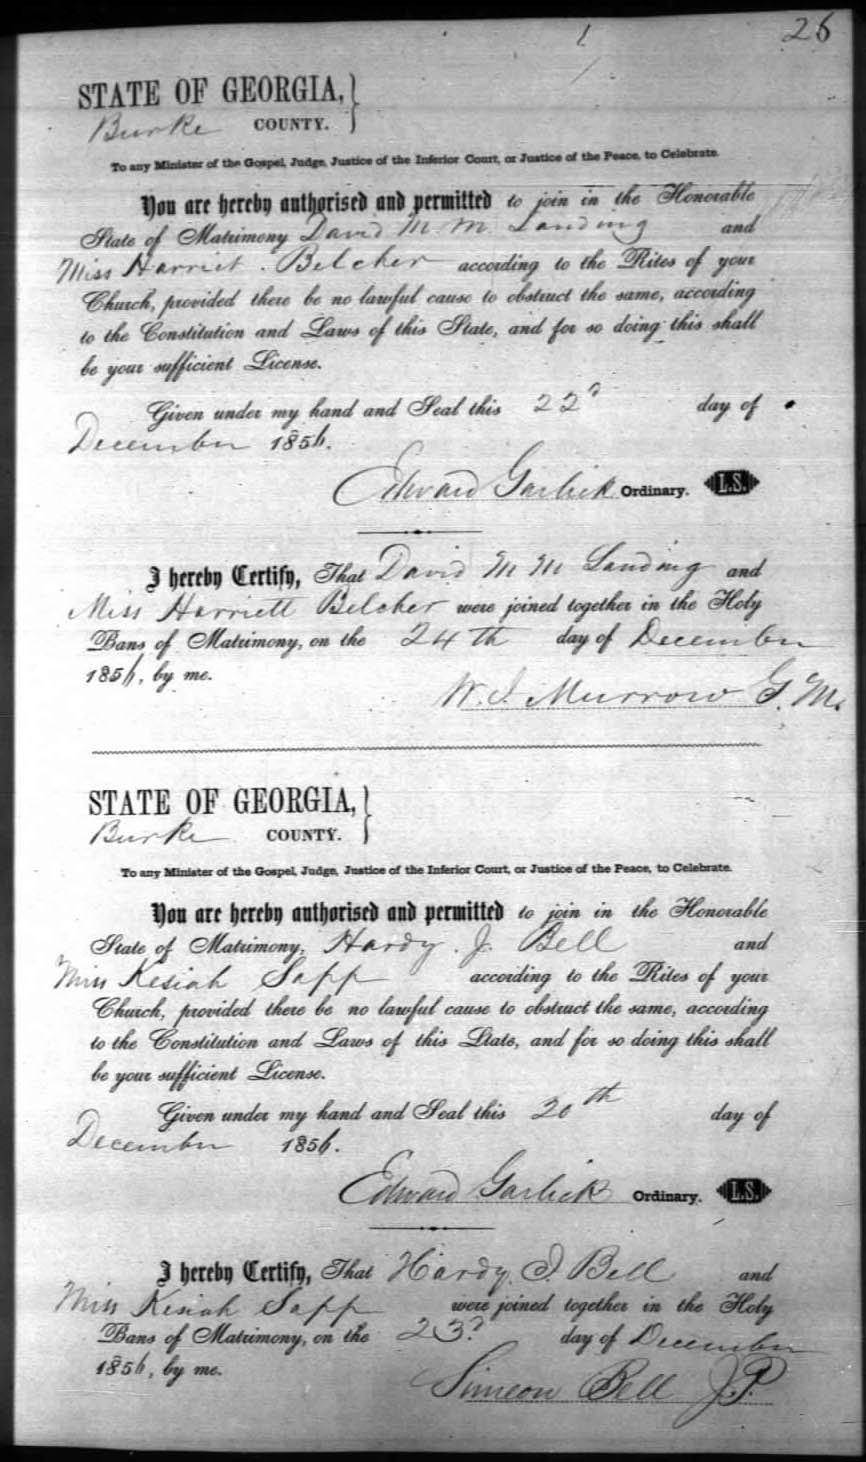 26
STATE OF GEORGIA,
Burke COUNTY.
To any Minister of the Gospel, Judge, Justice of the Inferior Court, or Justice of the Peace, to Celebrate.
You are hereby authorised and permitted to join in the Honorable
State of Matrimony David M. M. Landing and
Miss Harriet Belcher according to the Rites of your
Church, provided there be no lawful cause to obstruct the same, according
to the Constitution and Laws of this State, and for so doing this shall
be your sufficient License.
Given under my hand and Seal this 22d day of
December 1856.
Edward Garlick Ordinary. L.S.
I hereby Certify, That David M M Landing and
Miss Harriett Belcher were joined together in the Holy
Bans of Matrimony, on the 24th day of December
1856, by me.
W. J. Murrow G. M.
STATE OF GEORGIA,
Burke COUNTY.
To any Minister of the Gospel, Judge, Justice of the Inferior Court, or Justice of the Peace, to Celebrate.
You are hereby authorised and permitted to join in the Honorable
State of Matrimony, Hardy J. Bell and
Miss Kesiah Sapp according to the Rites of your
Church, provided there be no lawful cause to obstruct the same, according
to the Constitution and Laws of this State, and for so doing this shall
be your sufficient License.
Given under my hand and Seal this 20th day of
December 1856.
Edward Garlick Ordinary. L.S.
I hereby Certify, That Hardy J. Bell and
Miss Kesiah Sapp were joined together in the Holy
Bans of Matrimony, on the 23d day of December
1856, by me.
Simeon Bell J.P.